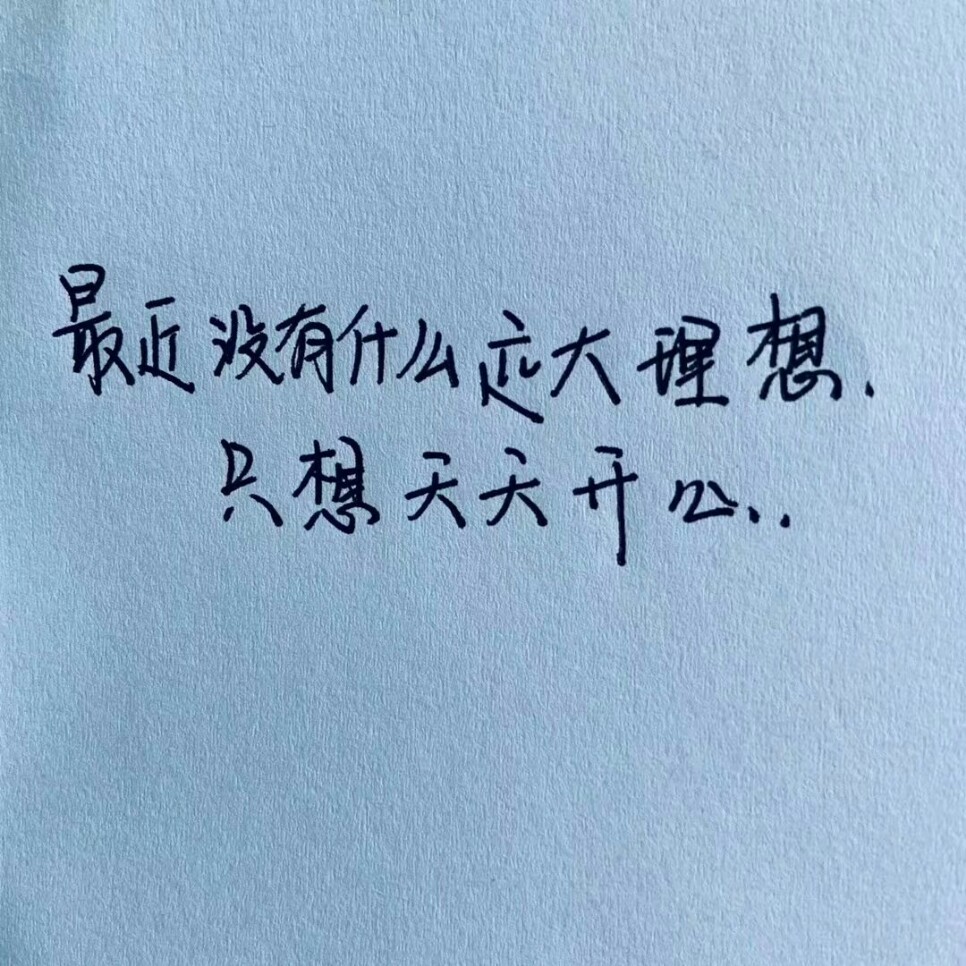 最近没有什么远大理想.
只想天天开心..